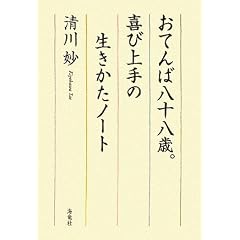 おてんば八十八歳。
喜び上手の
生きかたノート
清川 妙
Kiyokawa Tae
海竜社